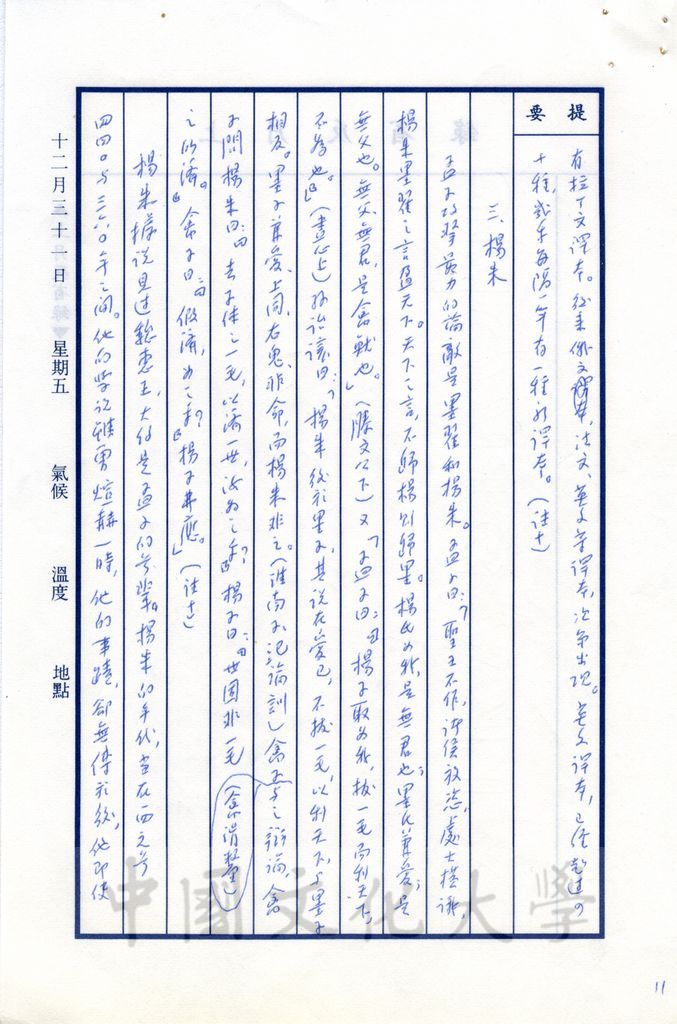 提要
有拉丁文譯本。後來俄文譯本,法文、英文等譯本,次第出現。英文譯本,已經超過四
十種,幾乎每隔一年有一種新譯本。(註十)
三、楊朱
孟子攻擊最力的論敵是墨翟和楊朱。孟子曰:「聖王不作,諸侯放恣,處士橫議,
楊朱墨翟之言盈天下。天下之言,不歸楊則歸墨。楊氏為我,是無君也;墨氏兼愛,是
無父也。無父無君,是禽獸也。」(滕文公下)又「孟子曰:『楊子取為我,拔一毛而利天下,
不為也。』(盡心上)孫治讓曰:「楊朱後於墨子,其說在愛己,不拔一毛,以利天下,與墨子
相反。墨子兼愛、上同、右鬼、非命,而楊朱非之。(淮南子氾論訓)禽子與之辯論,禽
子問楊朱曰:『去子體之一毛,以濟一世,汝為之乎?』楊子曰:『世固非一毛(禽滑釐)
之所濟。』禽子曰:『假濟,為之乎?』楊子弗應。」(註十一)
楊朱據說見過魏惠王,大約是孟子的前輩。楊朱的年代,當在西元前
四四〇與三六〇年之間。他的學說雖曾煊赫一時,他的事蹟,卻無傳於後,他即使
十二月三十一日 星期五 氣候 溫度 地點
中國文化大學
11